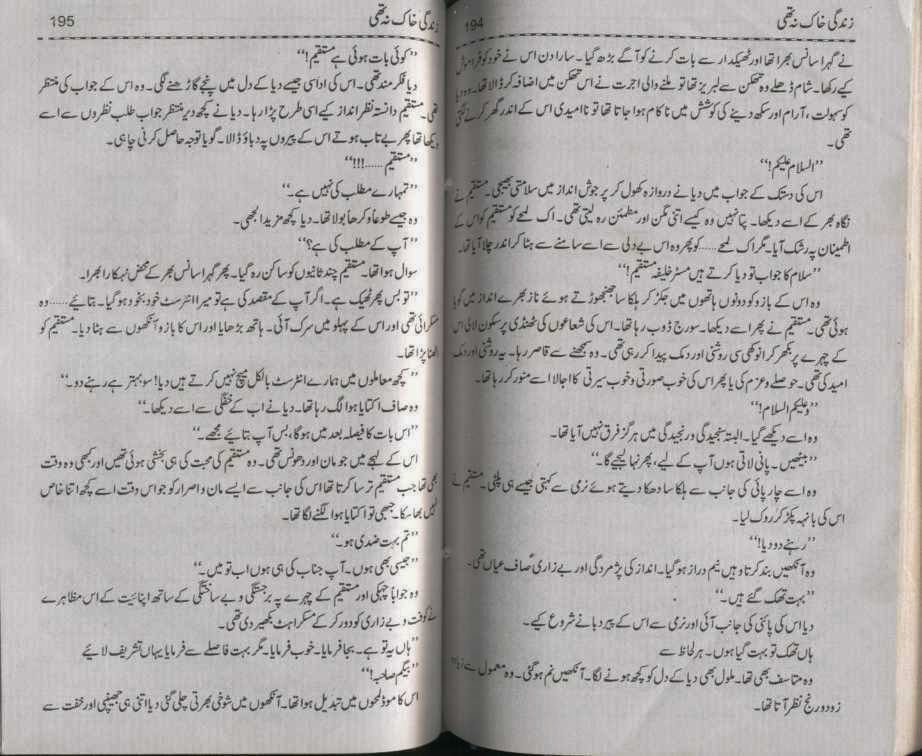 زندگی خاک نہ تھی
194
نے گہرا سانس بھرا تھا اور ٹھیکیدار سے بات کرنے کو آگے بڑھ گیا۔ سارا دن اس نے خود کو فراموش
کیے رکھا۔ شام ڈھلے وہ تھکن سے لبریز تھا تو ملنے والی اجرت نے اس تھکن میں اضافہ کر ڈالا تھا۔ وہ دیا
کو سہولت، آرام اور سکھ دینے کی کوشش میں ناکام ہوا جاتا تھا تو ناامیدی اس کے اندر گھر کرنے لگتی
تھی۔
”السلام علیکم!“
اس کی دستک کے جواب میں دیا نے دروازہ کھول کر پرجوش انداز میں سلامتی بھیجی۔ مستقیم نے
نگاہ بھر کے اسے دیکھا۔ پتا نہیں وہ کیسے اتنی مگن اور مطمئن رہ لیتی تھی۔ اک لمحے کو مستقیم کو اس کے
اطمینان پہ رشک آیا۔ مگر اک لمحے......کو پھر وہ اس بے دلی سے اسے سامنے سے ہٹا کر اندر چلا آیا تھا۔
”سلام کا جواب تو دیا کرتے ہیں مسٹر خلیفہ مستقیم!“
وہ اس کے بازو کو دونوں ہاتھوں میں جکڑ کر ہلکا سا جھنجھوڑتے ہوئے ناز بھرے انداز میں گویا
ہوئی تھی۔ مستقیم نے پھر اسے دیکھا۔ سورج ڈوب رہا تھا۔ اس کی شعاعوں کی ٹھنڈی پرسکون لالی اس
کے چہرے پر بکھر کر انوکھی سی روشنی اور دمک پیدا کر رہی تھی۔ وہ سمجھنے سے قاصر رہا۔ یہ روشنی اور دمک
امید کی تھی۔ حوصلے و عزم کی یا پھر اس کی خوب صورتی و خوب سیرتی کا اجالا اسے منور کر رہا تھا۔
”وعلیکم السلام!“
وہ اسے دیکھے گیا۔ البتہ سنجیدگی و رنجیدگی میں ہرگز فرق نہیں آیا تھا۔
”بیٹھیں۔ پانی لاتی ہوں آپ کے لیے، پھر نہا لیجیے گا۔“
وہ اسے چارپائی کی جانب سے ہلکا سا دھکا دیتے ہوئے نرمی سے کہتی جیسے ہی پلٹی۔ مستقیم نے
اس کی بانہہ پکڑ کر روک لیا۔
”رہنے دو دیا!“
وہ آنکھیں بند کرتا وہیں نیم دراز ہو گیا۔ انداز کی پژمردگی اور بے زاری صاف عیاں تھی۔
”بہت تھک گئے ہیں۔“
دیا اس کی پائنتی کی جانب آئی اور نرمی سے اس کے پیر دبانے شروع کیے۔
ہاں تھک تو بہت گیا ہوں۔ ہر لحاظ سے
وہ متاسف بھی تھا۔ ملول بھی دیا کے دل کو کچھ ہونے لگا۔ آنکھیں نم ہو گئی۔ وہ معمول سے زیادہ
زود و رنج نظر آتا تھا۔
زندگی خاک نہ تھی
195
”کوئی بات ہوئی ہے مستقیم!“
دیا فکر مند تھی۔ اس کی اداسی جیسے دیا کے دل میں پنجے گاڑھنے لگی۔ وہ اس کے جواب کی منتظر
تھی۔ مستقیم دانستہ نظر انداز کیے اسی طرح پڑا رہا۔ دیا نے کچھ دیر منتظر جواب طلب نظروں سے اسے
دیکھا تھا پھر بے تاب ہوتے اس کے پیروں پہ دباؤ ڈالا۔ گویا توجہ حاصل کرنی چاہی۔
”مستقیم......!!!“
”تمہارے مطلب کی نہیں ہے۔“
وہ جیسے طوعاً و کرھاً بولا تھا۔ دیا کچھ مزید الجھی۔
”آپ کے مطلب کی ہے؟“
سوال ہوا تھا۔ مستقیم چند ثانیوں کو ساکن رہ گیا۔ پھر گہرا سانس بھر کے محض نہکارا بھرا۔
”تو بس پھر ٹھیک ہے۔ اگر آپ کے مقصد کی ہے تو میرا انٹرسٹ خود بخود ہو گیا۔ بتائیے......وہ
مسکرائی تھی اور اس کے پہلو میں سرک آئی۔ ہاتھ بڑھایا اور اس کا بازو آنکھوں سے ہٹا دیا۔ مستقیم کو
اٹھنا پڑا تھا۔
”کچھ معاملوں میں ہمارے انٹرسٹ بالکل میچ نہیں کرتے ہیں دیا! سو بہتر ہے رہنے دو۔“
وہ صاف اکتایا ہوا لگ رہا تھا۔ دیا نے اب کے خفگی سے اسے دیکھا۔“
”اس بات کا فیصلہ بعد میں ہوگا، بس آپ بتائیے مجھے۔“
اس کے لہجے میں جو مان اور دھونس تھی۔ وہ مستقیم کی محبت کی ہی بخشی ہوئی تھیں اور کبھی وہ وقت
بھی تھا جب مستقیم ترسا کرتا تھا اس کی جانب سے ایسے مان و اصرار کو جو اس وقت اسے کچھ اتنا خاص
نہیں بھا سکا۔ جبھی تو اکتایا ہوا لگنے لگا تھا۔
”تم بہت ضدی ہو۔“
”جیسی بھی ہوں۔ آپ جناب کی ہی ہوں اب تو میں۔“
وہ جواباً چہکی اور مستقیم کے چہرے پہ برجستگی و بے ساختگی کے ساتھ اپنائیت کے اس مظاہرے
نے کوفت و بے زاری کو دور کر کے مسکراہٹ بکھیر دی تھی۔
”ہاں یہ تو ہے۔ بجا فرمایا۔ خوب فرمایا۔ مگر بہت فاصلے سے فرمایا یہاں تشریف لائیے
”بیگم صاحبہ!“
اس کا موڈ لمحوں میں تبدیل ہوا تھا۔ آنکھوں میں شوخی بھرتی چلی گئی دیا اتنی ہی جھینپی اور خفت سے